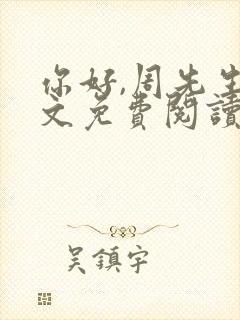 你好,周先生
文免费閱讀
吴鎮宇